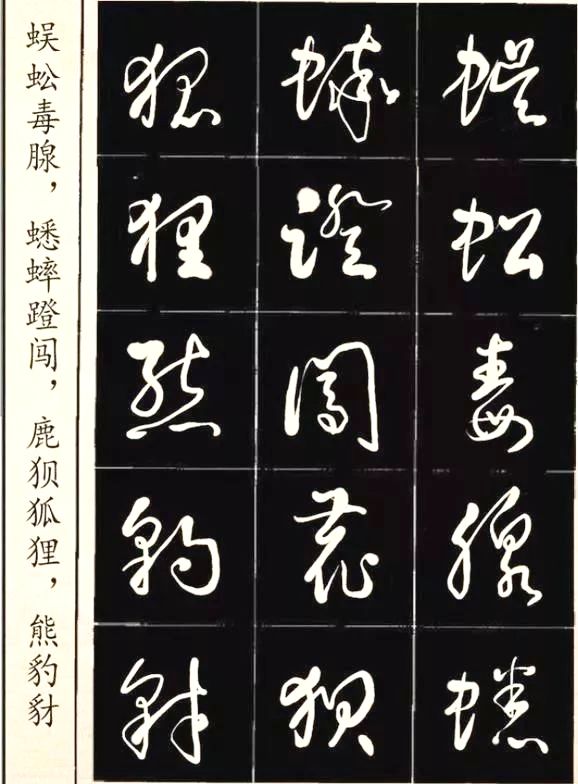 蜈蚣毒腺蟋
蟀蹬闖鹿狽
狐狸熊豹豺
蜈蚣毒腺，蟋蟀蹬闯，鹿狈狐狸，熊豹豺